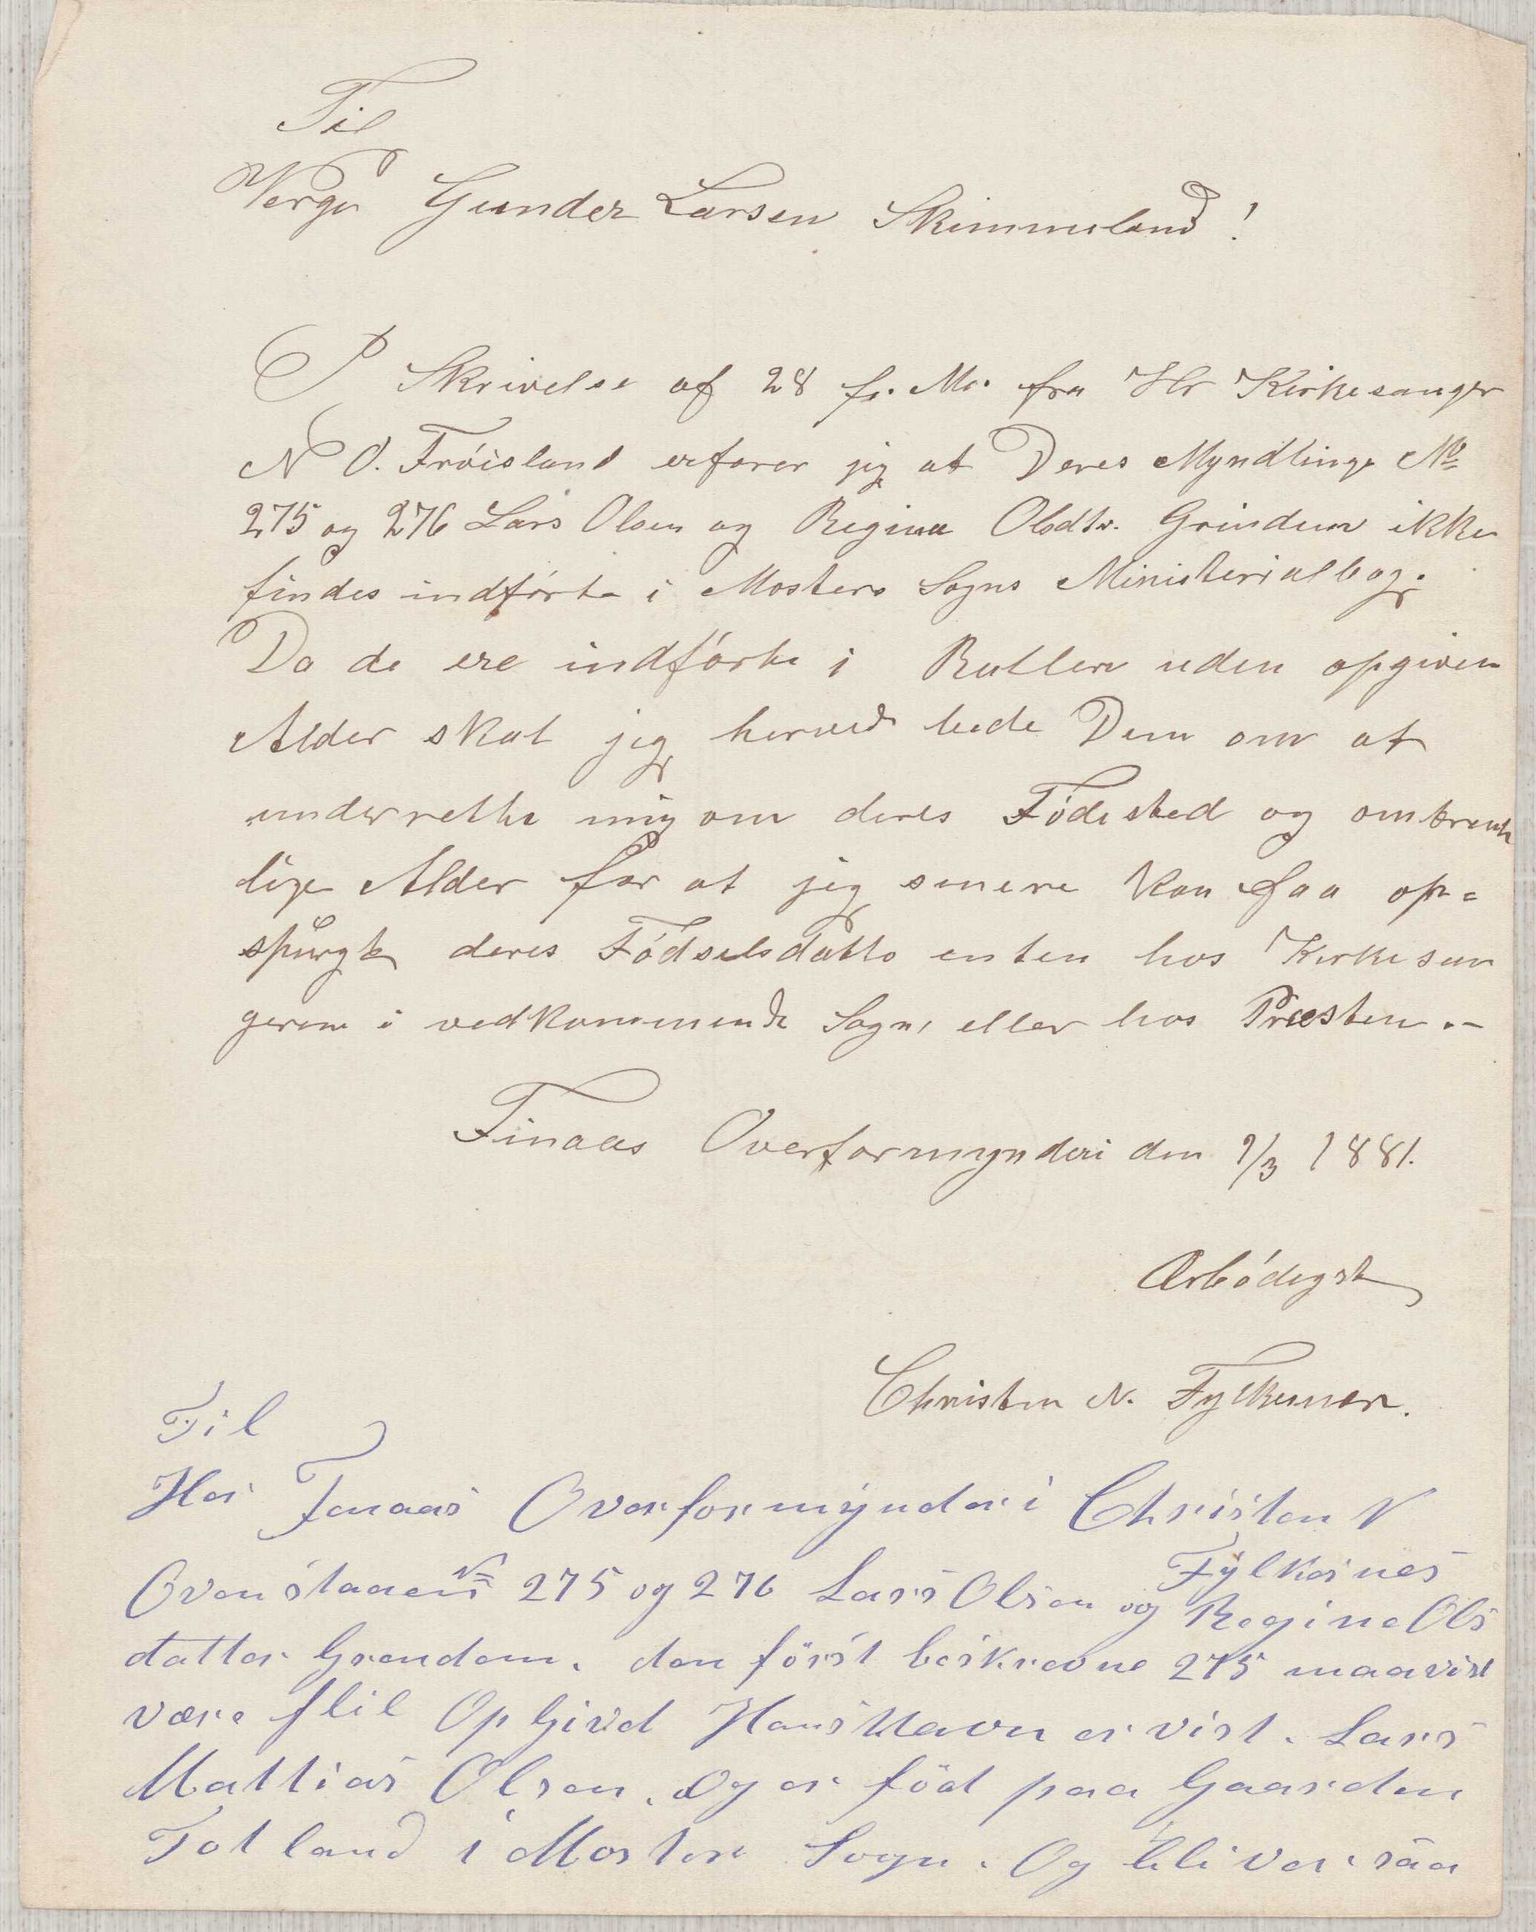 Til
Verge Gunder Larsen Skimmeland!
I Skrivelse af 28 f. M. fra Hr Kirkesanger
N O. Fróisland erfarer jeg at Deres Myndlinge No
275 og 276 Lars Olsen og Regina Olsdtr. Grindem ikke
findes indfórte i Mosters Sogns Ministerialbog.
Da de ere indfórte i Rullen uden opgiven
Alder skal jeg herved bede Dem om at
underrette mig om deres Fódested og omtrent
lige Alder for at jeg senere kan faa op=
spurgt deres Fódselsdatto enten hos Kirkesan
geren i vedkommende Sogn, eller hos Præsten.-
Finaas Overformynderi den 1/3 1881.
Ærbódigst
Christen N. Fylkesnes.
Til
Her Fenaas Overformynderi Christen N
Fylkesnes
Ovenstaaens No 275 og 276 Lars Olsen og Regine Ols
datter Grendem. den först beskrevne 275 maa vist
være flil Opgived Hans Navn er vist. Lars
Mattias Olsen. og er föd paa Gaarden
Totland i Moster Sogn. Og bliver saa